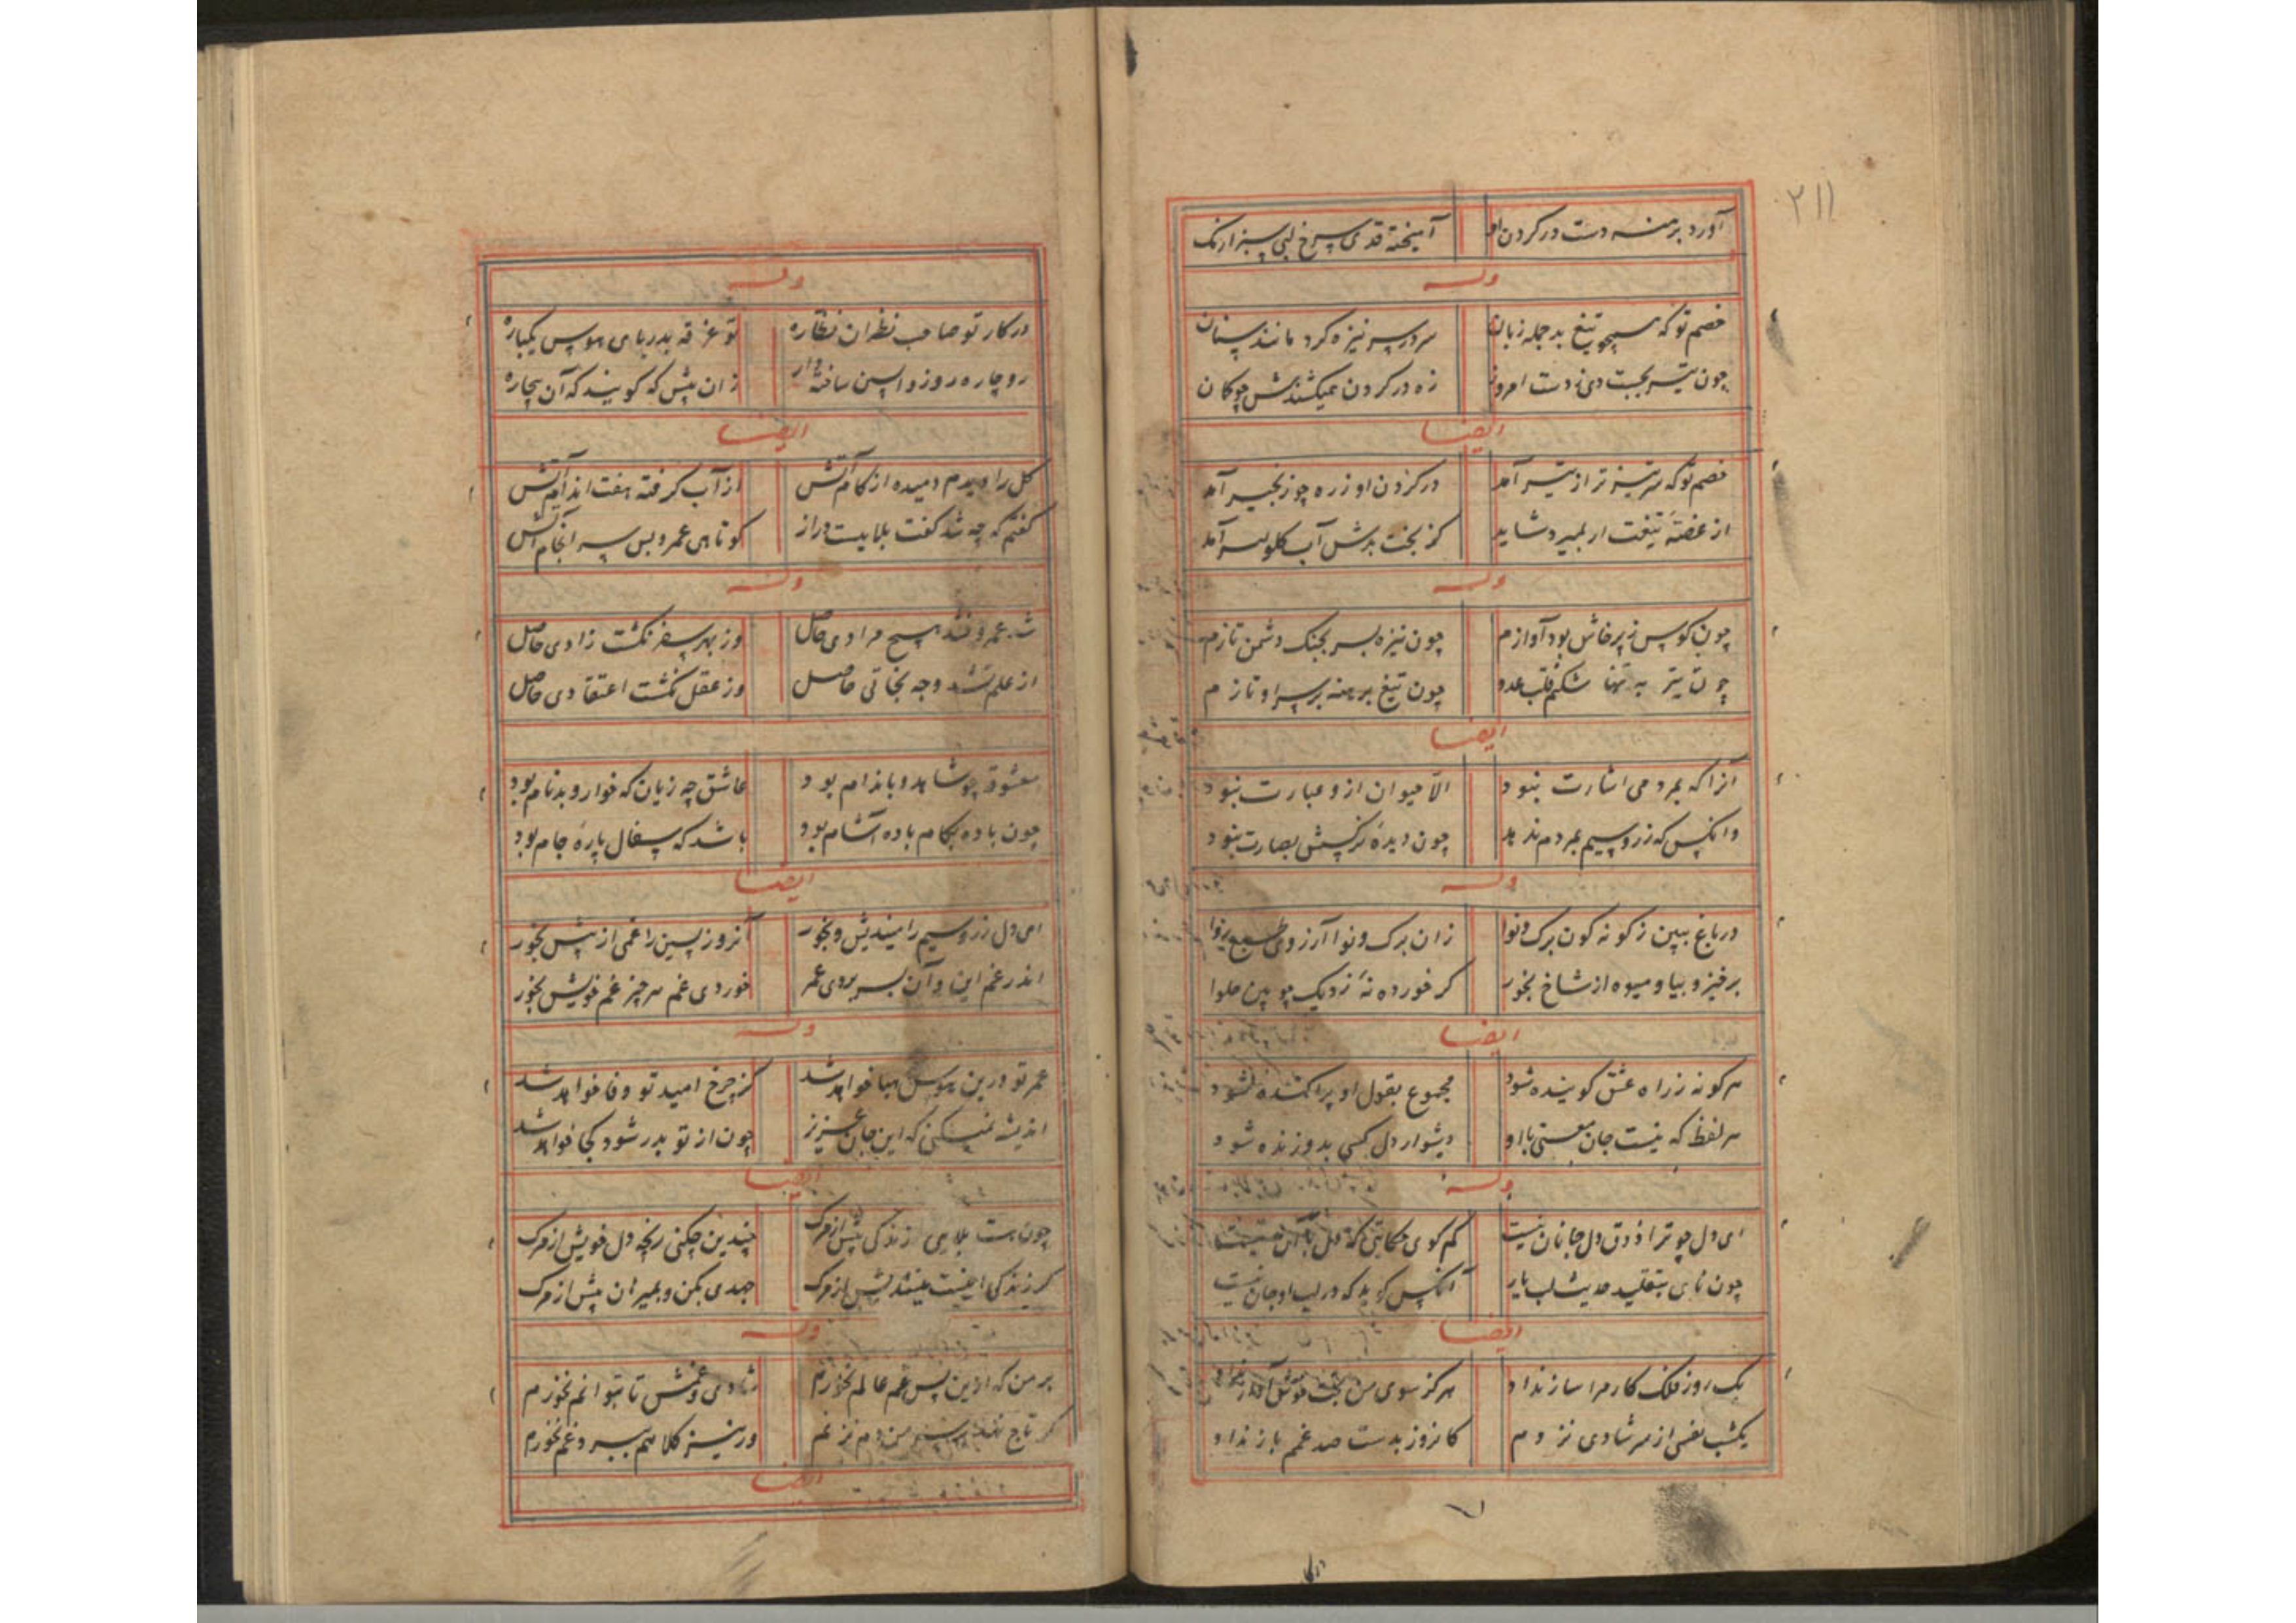 ۲۱۱
آورد برهنه دست در کردن او آمیخته قدی سرخ لبی سبز ارنک
وله
خصم تو که همچو تیغ بد جمله زبان سر در سر نیزه کرد مانند سنان
چون تیر بجست دی ز دست امروز زه در کردن همیکشندش چو کمان
ایضا
خصم تو که سر تیز تر از تیر آمد در کردن او زره چو زنجیر آمد
از غصهٔ تیغت ار بمیرد شاید کز بخت بدش آب کلو آمد
وله
چون کوس ز پرخاش بود آوازم چون نیزه بسر بجنک دشمن تازم
چون تیر به تنها شکنم قلب عدو چون تیغ برهنه بر سر او تازم
ایضا
آنرا که بمردمی اشارت نبود الا حیوان ازو عبارت نبود
وانکس که زر و سیم بمردم ندهد چون دیدهٔ نرکسش بصارت نبود
وله
در باغ ببین ز کونه کون برک و نوا زان برک و نوا آرزوی طبع
برخیز و بیا و میوه از شاخ بخور کر خورده نهٔ نزدیک چوبین حلوا
ایضا
هر کو نه ز راه عشق کوینده شود مجموع بقول او پراکنده نشود
هر لفظ که نیست جان معنی با او دشوار دل کسی بدو زنده شود
وله
ای دل چو ترا ذوق دل جانان نیست کم کوی حکایتی که
چون نای بتقلید حدیث لب یار آنکس کوید که در لب او جان نیست
ایضا
یک روز فلک کار مرا ساز نداد هرکز سوی من بخت خوش آواز نداد
یکشب نفسی از سر شادی نزدم کانروز بدست صد غمم باز نداد
وله
در کار تو صاحب نظران نظاره تو غرقه بدریای هوس یکباره
رو چاره روز واپسین ساخته دار زان پیش که کویند که آن بیچاره
ایضا
کل را دیدم دمیده از کام آتش از آب کرفته هفت اندام آتش
کفتم که چه شد کفت بلاییست دراز کوتاهی عمر و بس سرانجام آتش
وله
شد عمر و نشد هیچ مرادی حاصل وز بهر سفر نکشت زادی حاصل
از علم نشد وجه نجاتی حاصل وز عقل نکشت اعتقادی حاصل
معشوقه چو شاهد و باندام بود عاشق چه زیان که خوار و بدنام بود
چون باده بکام باده آشام بود باشد که سفال پارهٔ جام بود
ایضا
ای دل زر و سیم را میندیش و بخور آنروز پسین را غمی از پیش بخور
اندر غم این و آن بسر بردی عمر خوردی غم هر چیز غم خویش بخور
وله
عمر تو درین هوس هبا خواهد شد کز چرخ امید تو وفا خواهد شد
اندیشه نمیکنی که این جان عزیز چون از تو بدر شود کجا خواهد شد
ایضا
چون هست بلای زندکی پیش از مرک چندین چکنی رنجه دل خویش از مرک
کر زندکی اینست میندیش از مرک جهدی بکن و بمیر ان پیش از مرک
وله
بر من که ازین پس غم عالم نخورم شادی و غمش تا بتوانم نخورم
کر تاج نهند بر سر من دم نزنم ور نیز کلاهم ببرد غم نخورم
ایضا